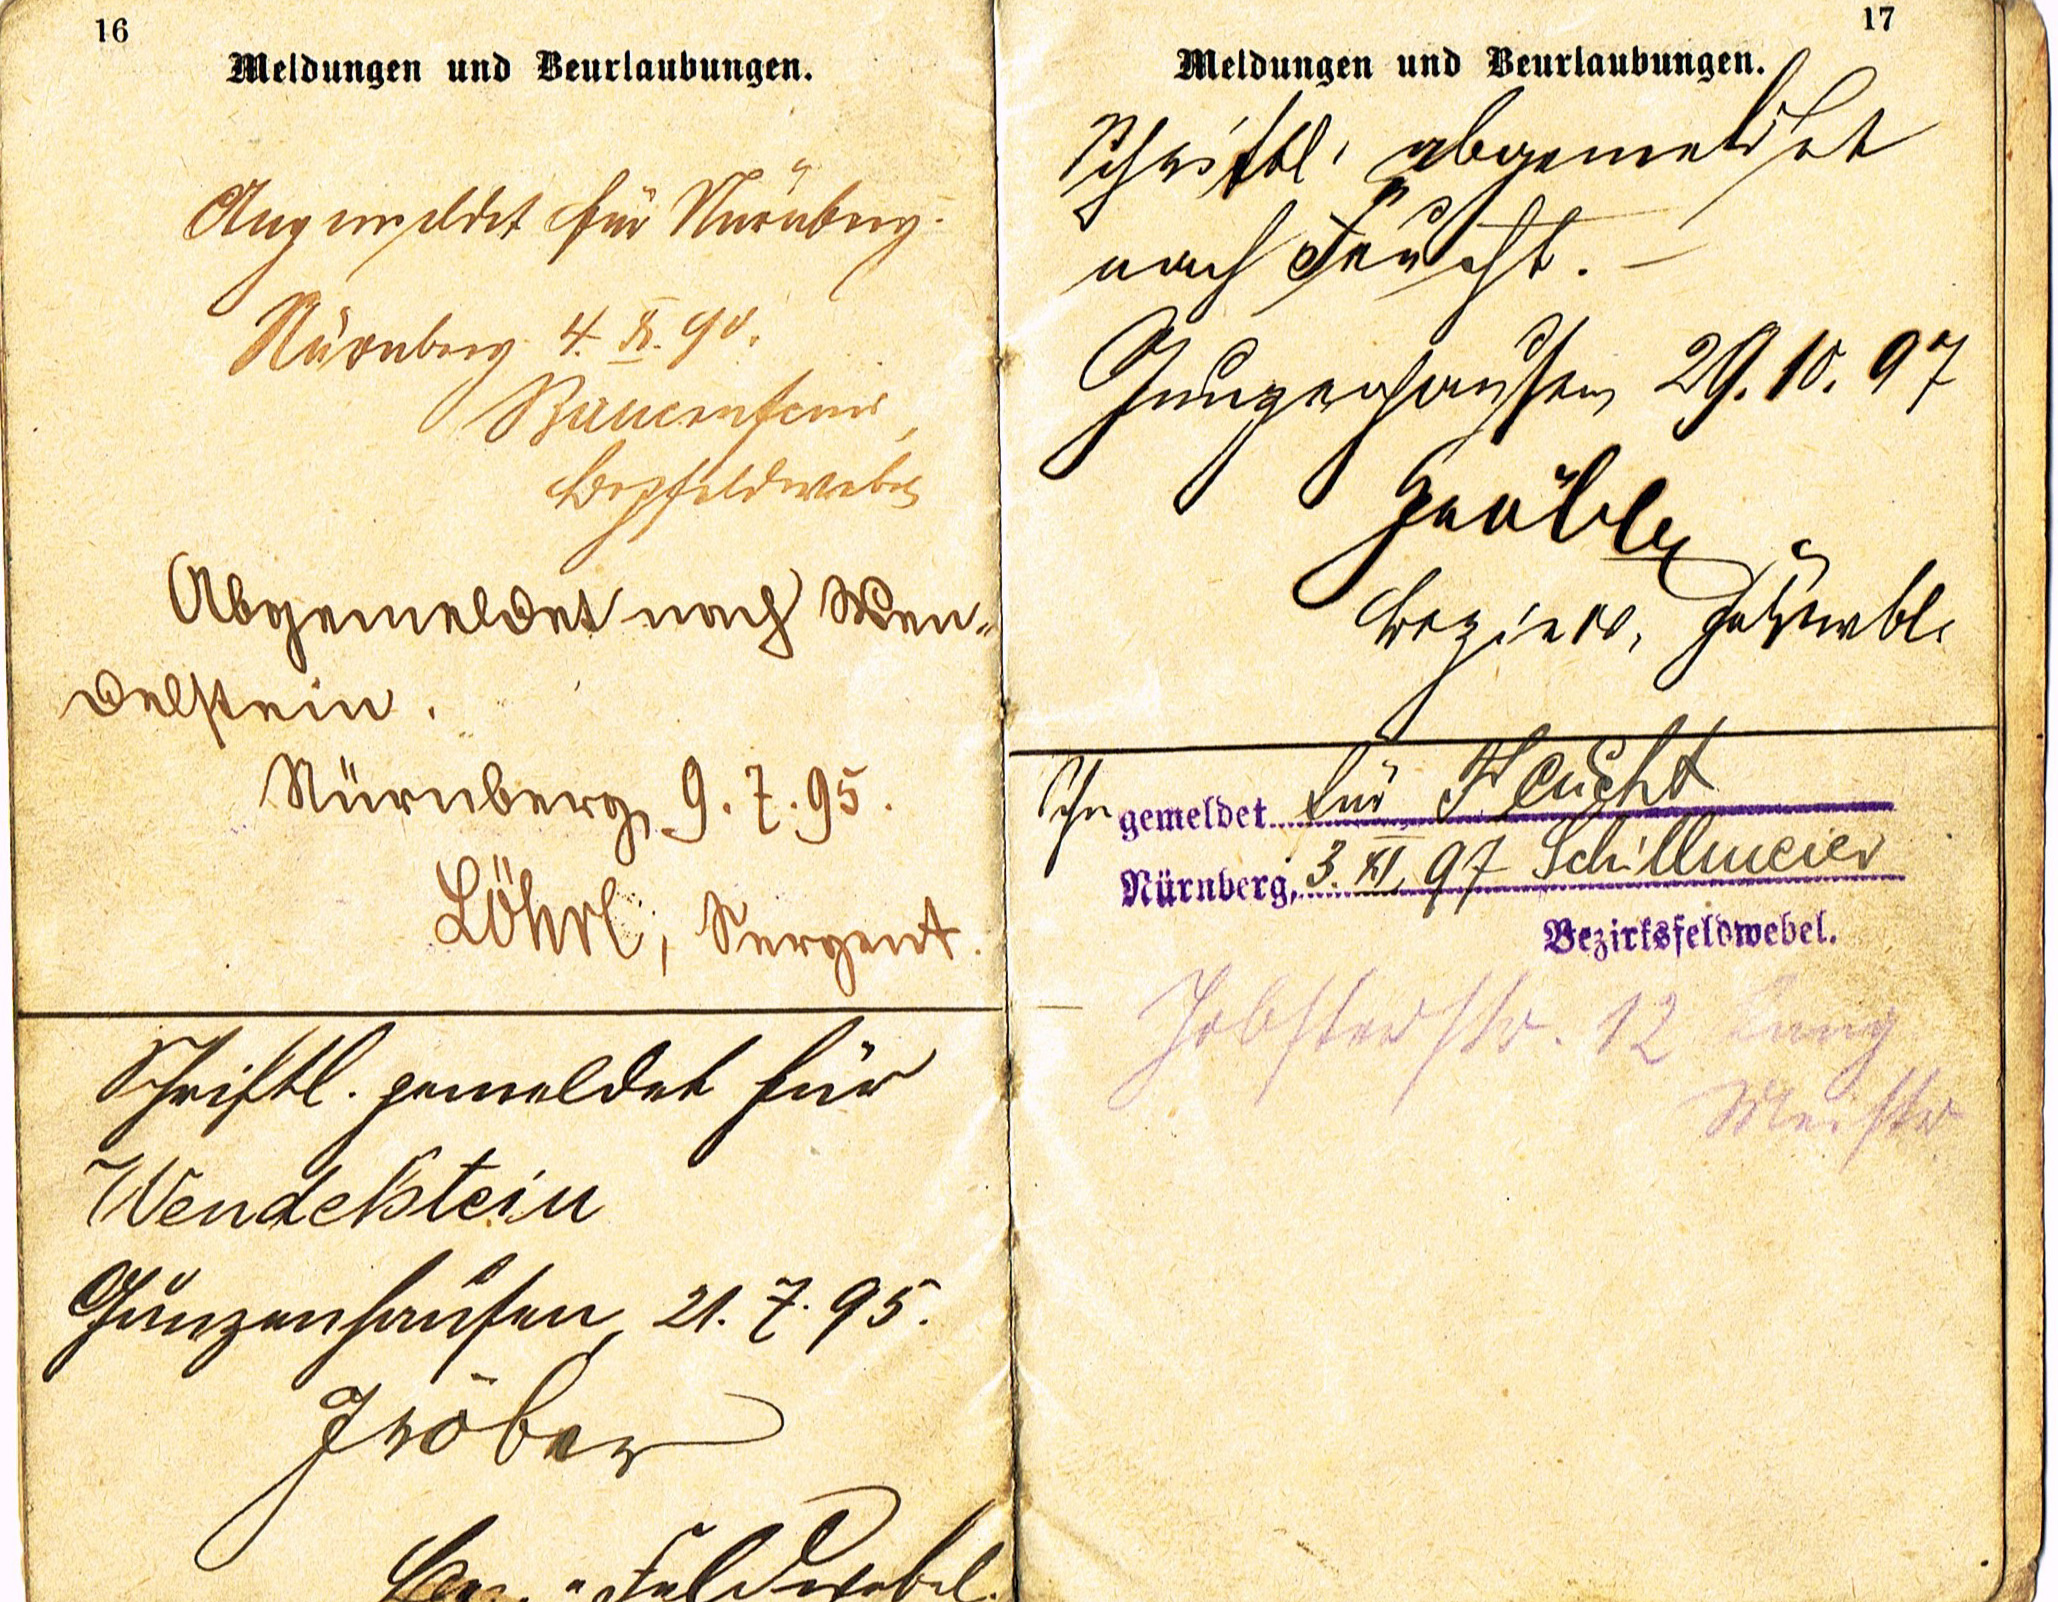 16
Meldungen und Beurlaubungen.
Angemeldet für Nürnberg.
Nürnberg 4. XI. 90.
Bauernfeind,
Bezfeldwebel
Abgemeldet nach Wen-
delstein.
Nürnberg, 9. 7. 95.
Löhrl, Sergent.
Schriftl. gemeldet für
Wendelstein
Gunzenhausen, 21. 7. 95.
Feldwebel.
17
Meldungen und Beurlaubungen.
Schriftl. abgemeldet
nach Feucht. –
Gunzenhausen 29. 10. 97
Bezirks. Feldwbl.
Schr gemeldet für Feucht
Nürnberg, 3. XI. 97 Schillmeier
Bezirksfeldwebel.
Jobsterstr. 12
Meister